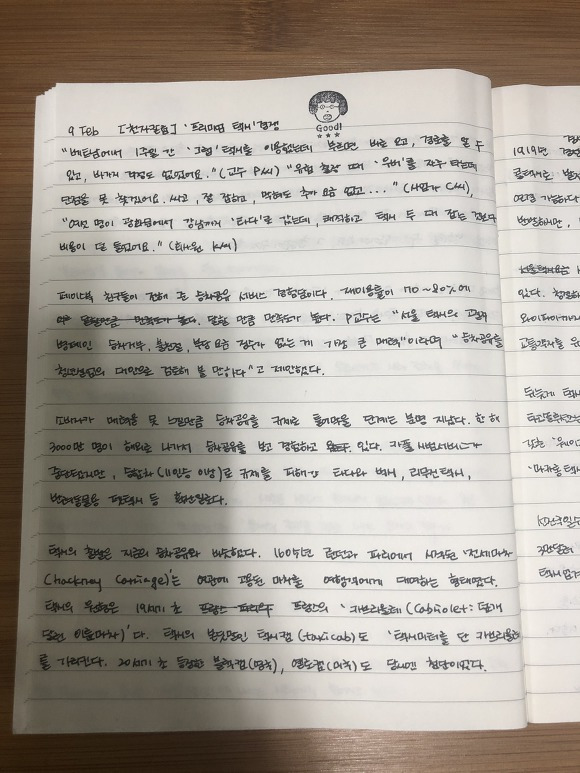 Good!
9 Feb [천자칼럼] '프리미엄 택시' 경쟁
"베트남에서 1주일 간 '그랩' 택시를 이용했는데 부르면 바로 오고, 경로를 알 수
있고, 바가지 걱정도 없었어요." (교수 P씨) "유럽 출장 때 '우버'를 자주 타는데
단점을 못 찾겠어요. 싸고, 잘 잡히고, 막혀도 추가 요금 없고..." (사업가 C씨),
"여섯 명이 광화문에서 강남까지 '타다'로 갔는데, 쾌적하고 택시 두 대 잡는 것보다
비용이 덜 들었어요." (회사원 K씨)
페이스북 친구들이 전해 준 승차공유 서비스 경험담이다. 재이용률이 70~80%에
달할 만큼 만족도가 높다. P교수는 "서울 택시의 고질적
병폐인 승차거부, 불친절, 부당 요금 징수가 없는 게 가장 큰 매력"이라며 "승차공유를
혁신성장의 대안으로 검토해 볼 만하다"고 제안했다.
소비자가 매력을 못 느낄만큼 승차공유를 규제로 틀어막을 단계는 분명 지났다. 한 해
3000만 명이 해외로 나가서 승차공유를 보고 경험하고 있다. 카풀 시범서비스가
중단됐지만, 승합차(11인승 이상)로 규제를 피해간 타다와 벅시, 리무진택시,
반려동물용 펫택시 등 확산일로다.
택시의 출발은 지금의 승차공유와 비슷하다. 16
런던과 파리에서 시작된 '전세마차
(Hackney Carriage)'는 여관에 고용된 마차를 여행객에게 대여하는 형태였다.
택시의 원형은 19세기 초 프랑스의 '카브리올레 (Cabriolet: 덮개
달린 이륜마차)'다. 택시의 본딧말인 택시캡(taxicab)도 '택시미터를 단 카브리올레'
를 가리킨다. 20세기 초 등장한 블랙캡(영국), 옐로캡(미국)도 당시엔 첨단이었다.
1919년